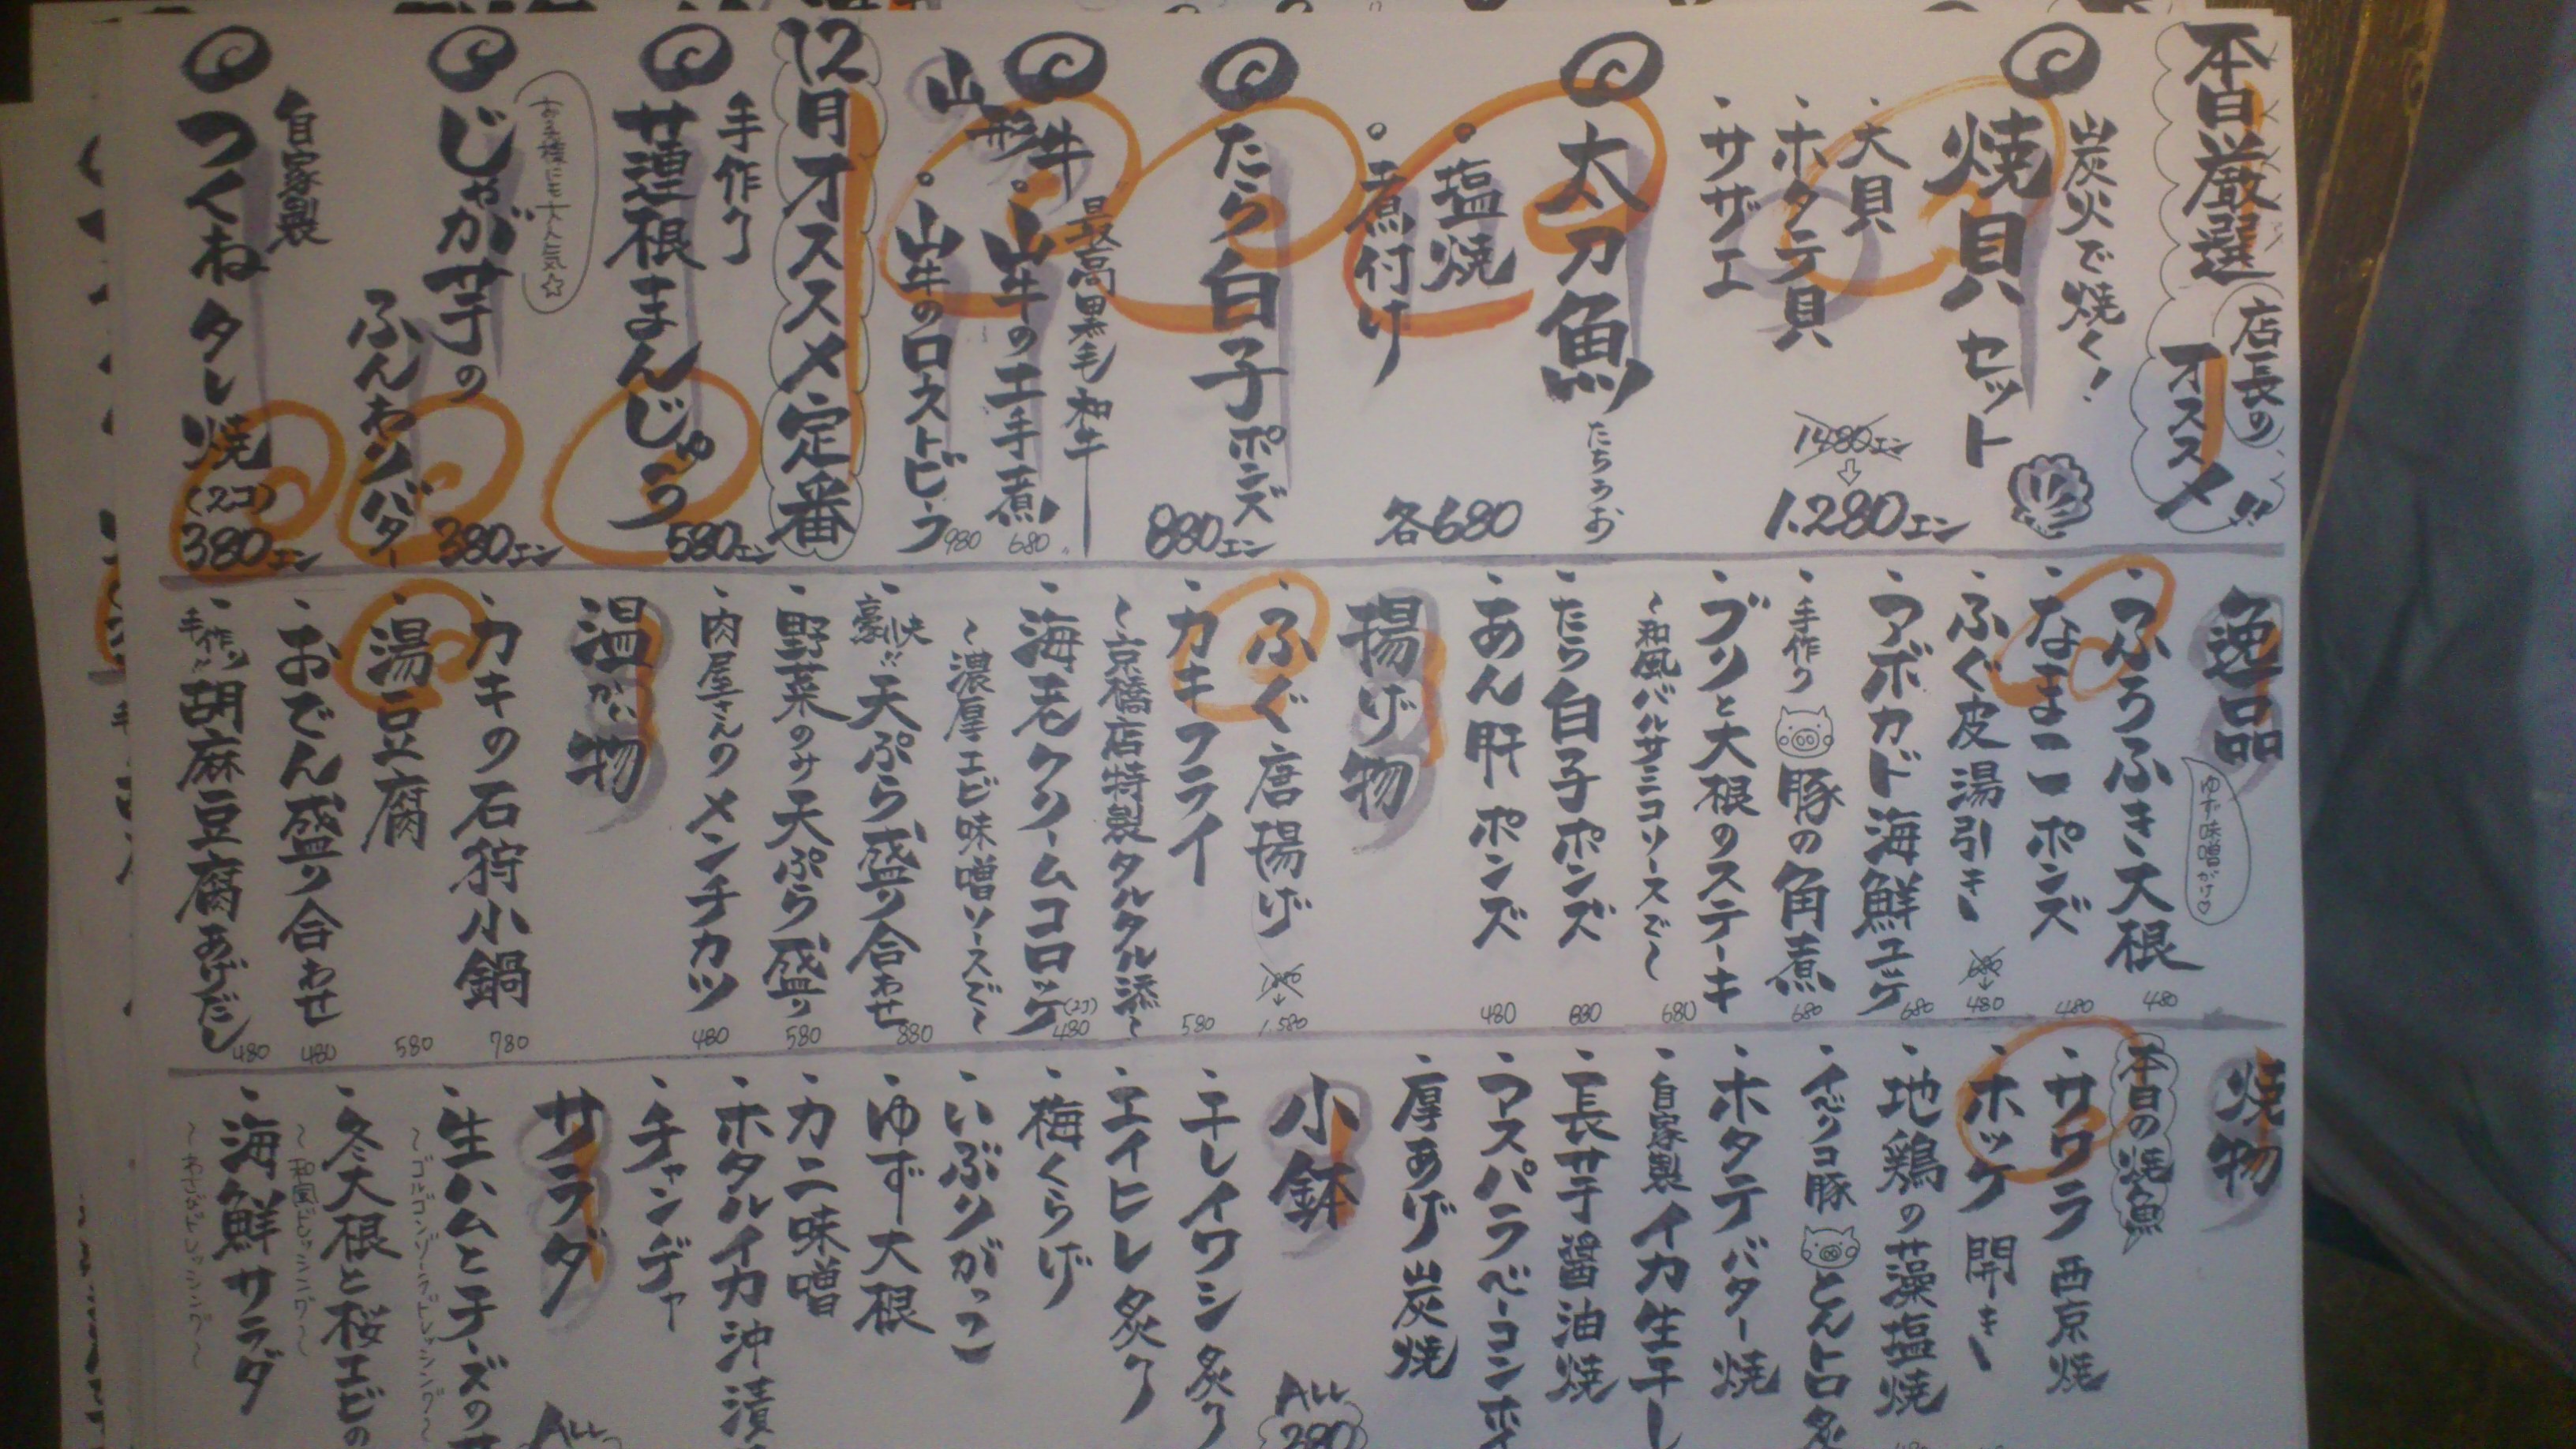 本日厳選
店長の
オススメ!!
炭火で焼く!
焼貝セット
・大貝
・ホタテ貝
・サザエ
1480エン
⇩
1.280エン
太刀魚
たちうお
・塩焼
・煮付け
各680
たら白子ポンズ
880エン
山形牛
最高黒毛和牛
・山牛の
煮
680
・山牛のロストビーフ
980
12月オススメ定番
手作り
蓮根まんじゅう
580エン
じゃが芋の
ふんわりバター
380エン
自家製
つくねタレ焼
(2コ)
380エン
逸品
・ふろふき大根
ゆず味噌がけ♡
480
・なまこポンズ
480
・ふぐ皮湯引き
680
↓
480
・アボカド海鮮ユッケ
680
・手作り豚の角煮
680
・ブリと大根のステーキ
〜和風バルサミコソースで〜
680
・たら白子ポンズ
880
・あん肝ポンズ
480
揚げ物
・ふぐ唐揚げ
↓
1.580
・カキフライ
〜京橋店特製タルタル添〜
580
・海老クリームコロッケ
(2コ)
480
〜濃厚エビ味噌ソースで〜
・豪快!!天ぷら盛り合わせ
880
・野菜のみ天ぷら盛り
580
・肉屋さんのメンチカツ
480
温かい物
・カキの石狩小鍋
780
・湯豆腐
580
・おでん盛り合わせ
480
・手作り胡麻豆腐あげだし
480
焼物
本日の焼魚
・サワラ西京焼
・ホッケ開き
・地鶏の藻塩焼
・イベリコ豚とんトロ炙
・ホタテバター焼
・自家製イカ生干し
・長芋醤油焼
・アスパラベーコン
・厚あげ炭焼
小鉢
ALL
380
・干しイワシ炙り
・エイヒレ炙り
・梅くらげ
・いぶりがっこ
・ゆず大根
・カニ味噌
・ホタルイカ沖漬
・チャンヂャ
サラダ
ALL
・生ハムとチーズの
〜ゴルゴンゾーラドレッシング〜
・冬大根と桜エビの
〜和風ドレッシング〜
・海鮮サラダ
〜わさびドレッシング〜